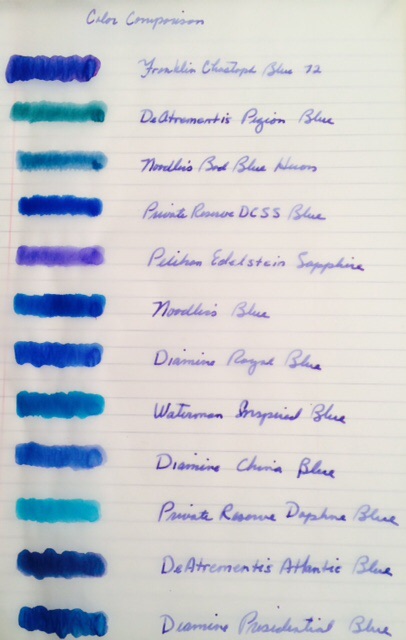 Color Comparison
Franklin Christoph Blue 72
DeAtramentis Pigion Blue
Noodlers Bad Blue Heron
Private Reserve DCSS Blue
Pelikan Edelstein Sapphire
Noodlers Blue
Diamine Royal Blue
Waterman Inspired Blue
Diamine China Blue
Private Reserve Daphne Blue
DeAtrementis Atlantic Blue
Diamine Presidential Blue